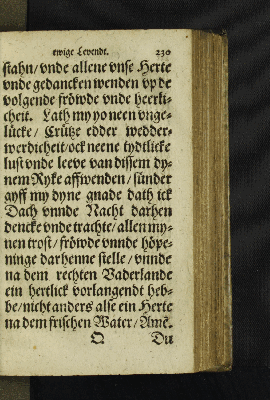 ewige Levendt. 230
stahn/ vnde allene vnse Herte
vnde gedancken wenden vp de
volgende fröwde vnde heerli-
cheit. Lath my yo neen vnge-
lücke/ Crütze edder wedder-
werdicheit/ ock neene tydtlicke
lust vnde leeve van dissem dy-
nem Ryke affwenden/ sünder
gyff my dyne gnade dath ick
Dach vnnde Nacht darhen
dencke vnde trachte/ allen my-
nen trost/ fröwde vnnde höpe-
ninge darhenne stelle/ vnnde
na dem rechten Vaderlande
ein hertlick vorlangendt heb-
be/ nicht anders alse ein Herte
na dem frischen Water/ Amē.
Q Du